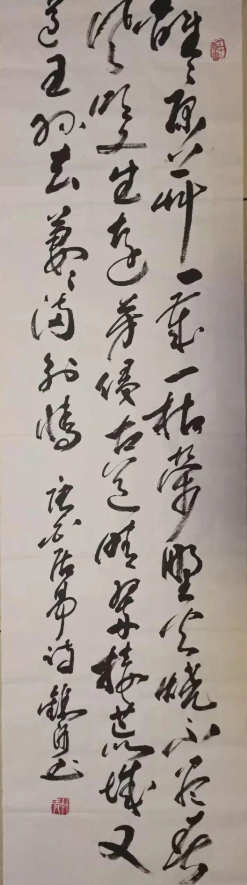 離離原上草一歲一枯榮野火燒不盡春
風吹又生遠芳侵古道晴翠接荒城又
送王孫去萋萋滿別情 唐白居易詩 書